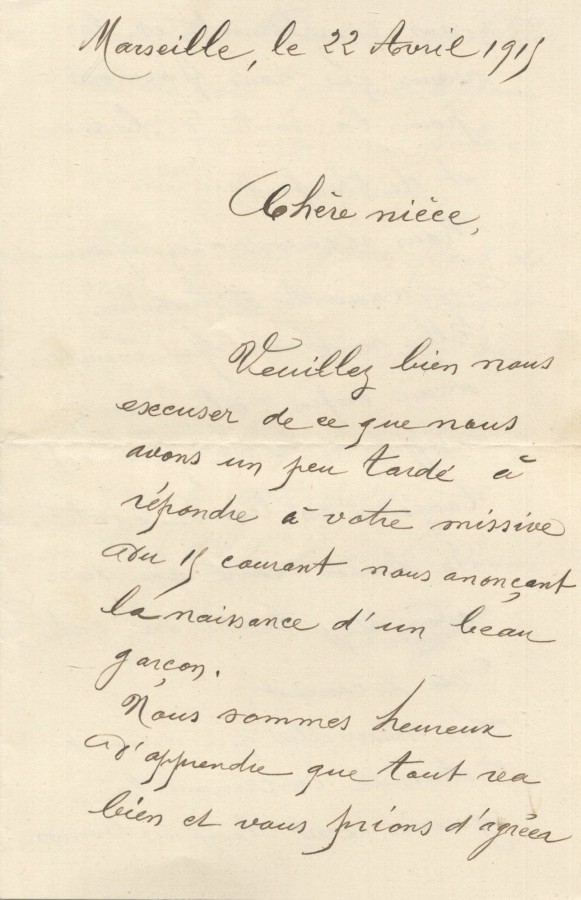 Marseille, le 22 Avril 1915
Chère nièce,
Veuillez bien nous
excuser de ce que nous
avons un peu tardé à
répondre à votre missive
du 15 courant nous anonçant
la naissance d'un beau
garçon.
Nous sommes heureux
d'apprendre que tout va
bien et vous prions d'agréer